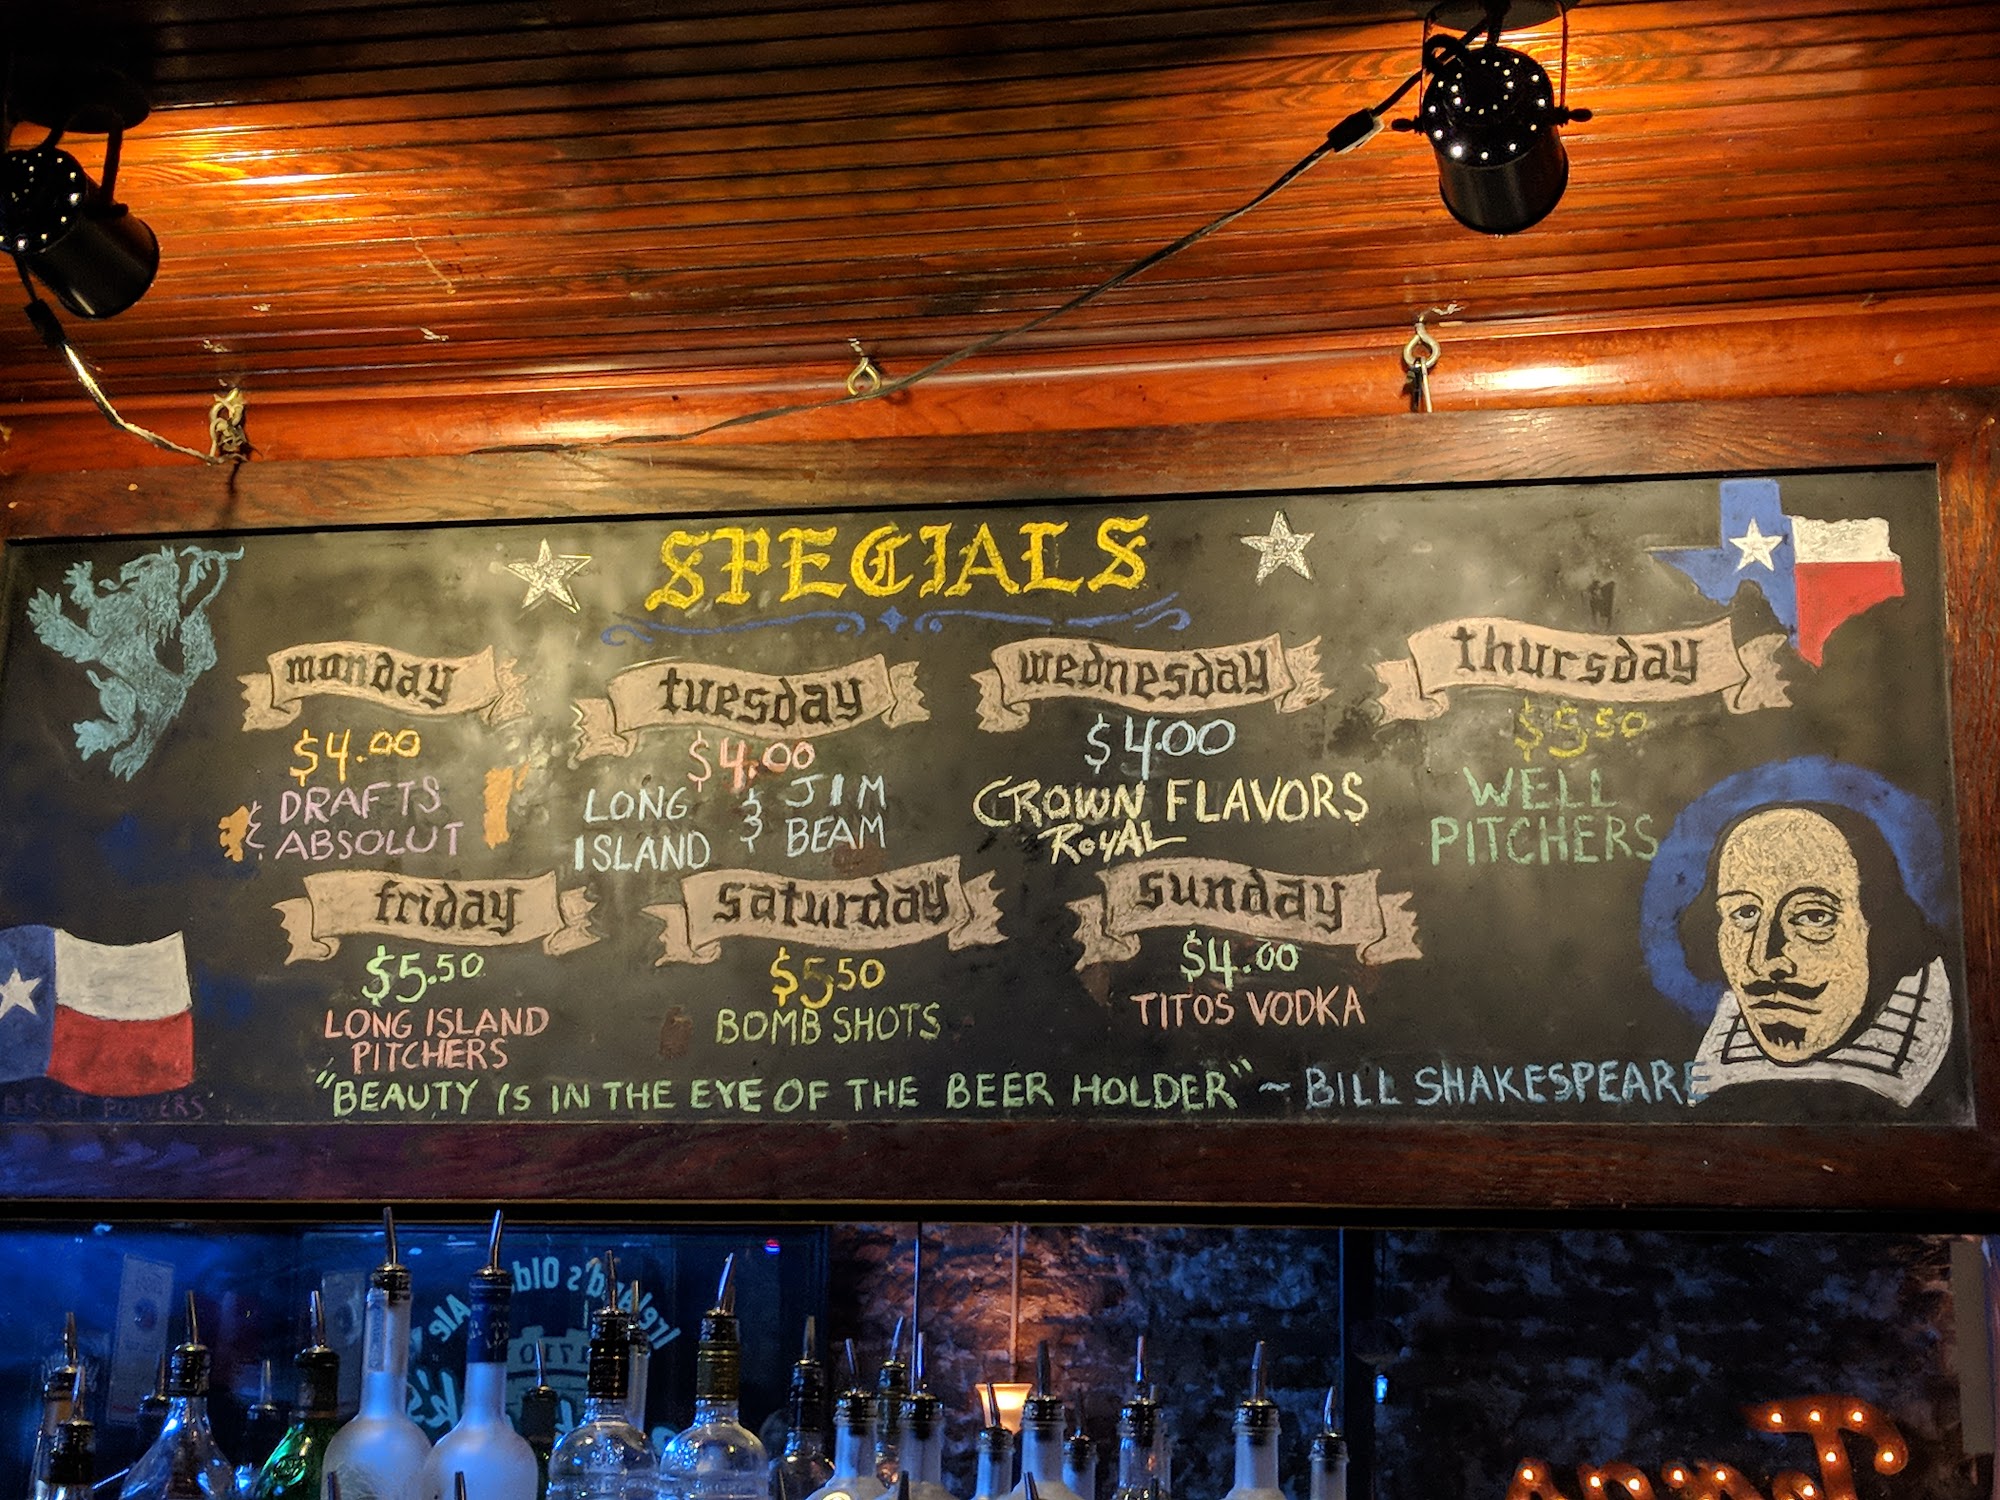 SPECIALS
monday
$4.00
& DRAFTS
& ABSOLUT
tuesday
$4.00
LONG ISLAND
& JIM BEAM
wednesday
$4.00
CROWN FLAVORS
ROYAL
thursday
$5.50
WELL
PITCHERS
friday
$5.50
LONG ISLAND
PITCHERS
saturday
$5.50
BOMB SHOTS
sunday
$4.00
TITOS VODKA
"BEAUTY IS IN THE EYE OF THE BEER HOLDER" ~ BILL SHAKESPEARE
POWERS
Ireland's Old
Ale
1710